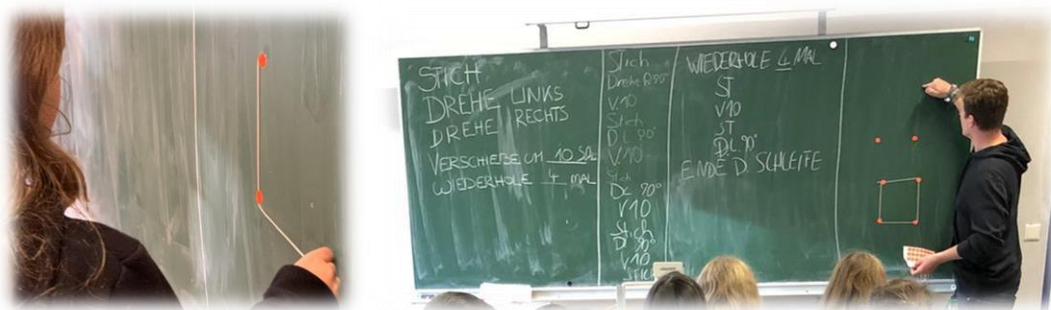 STICH
DREHE LINKS
DREHE RECHTS
VERSCHIEBE UM 10
WIEDERHOLE 4 MAL
Stich
Drehe R 90°
V 10
Stich
D L 90°
V 10
Stich
DL 90°
V 10
Stich
D 90°
V 10
STICH
WIEDERHOLE 4 MAL
ST
V10
ST
DL 90°
ENDE D. SCHLEIFE